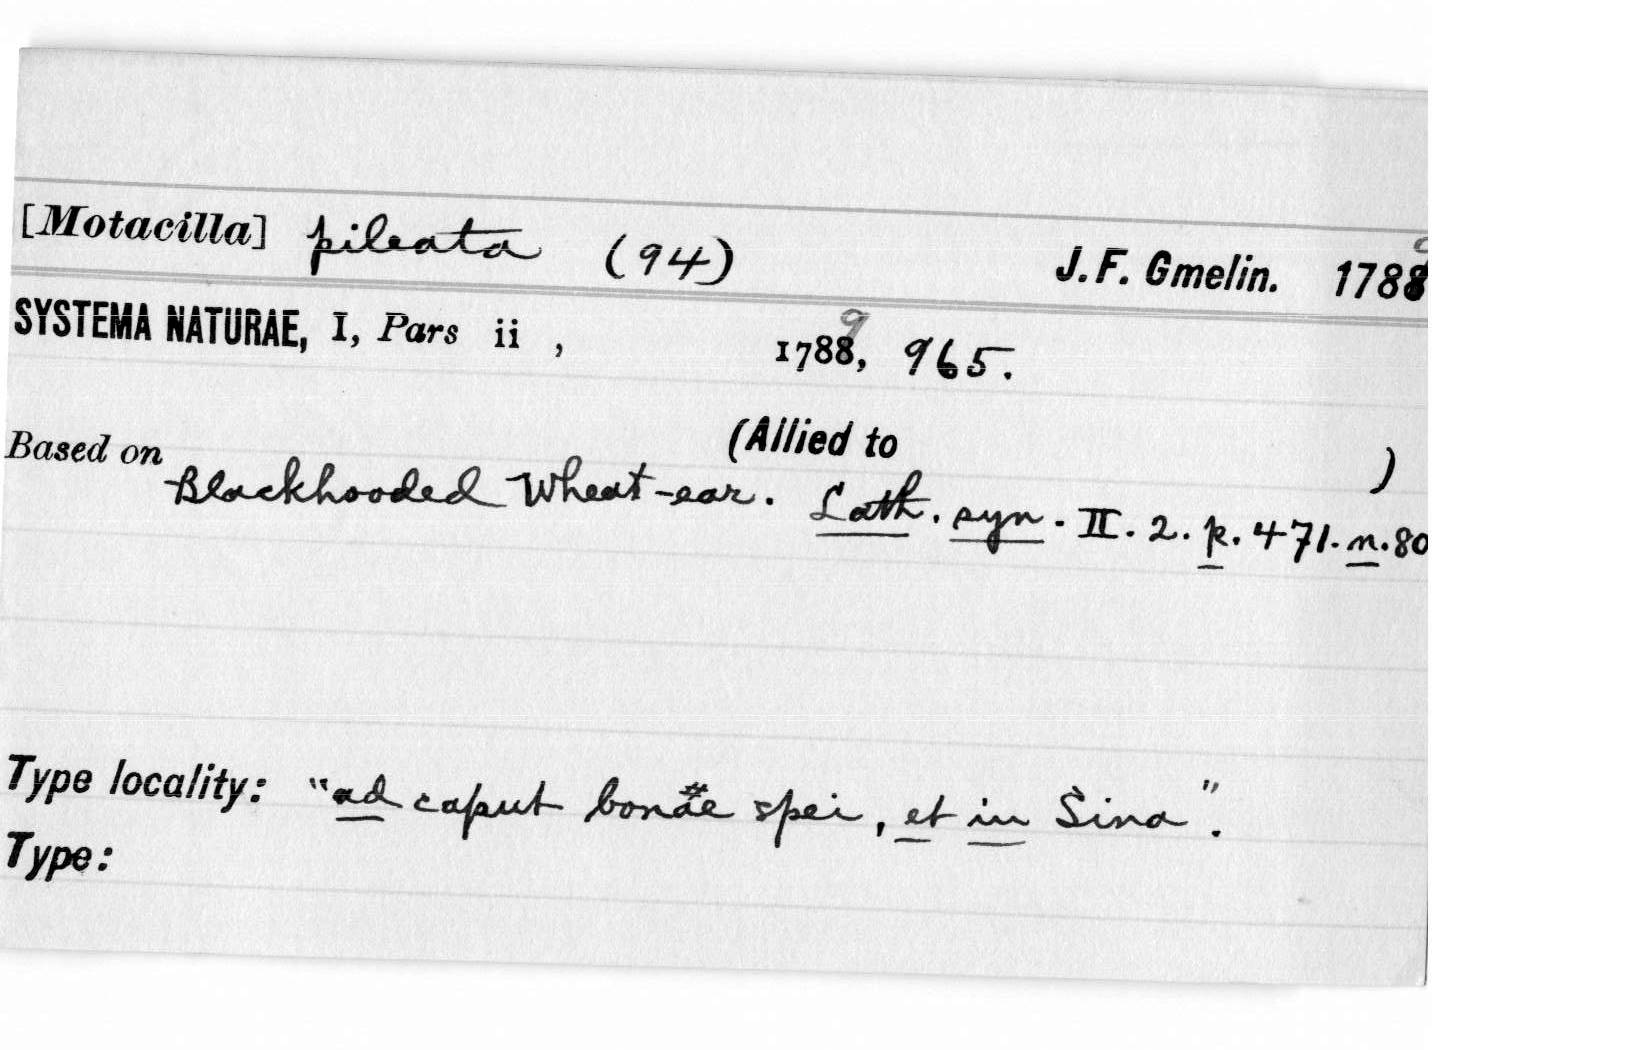 [Motacilla] pileata (94) J. F. Gmelin. 1788
SYSTEMA NATURAE, I, Pars ii , 1788, 9 965.
(Allied to )
Based on Blackhooded Wheat-ear. Lath. syn. II. 2. p. 471. n. 80
Type locality: "ad caput bonae spei, et in Sina".
Type: